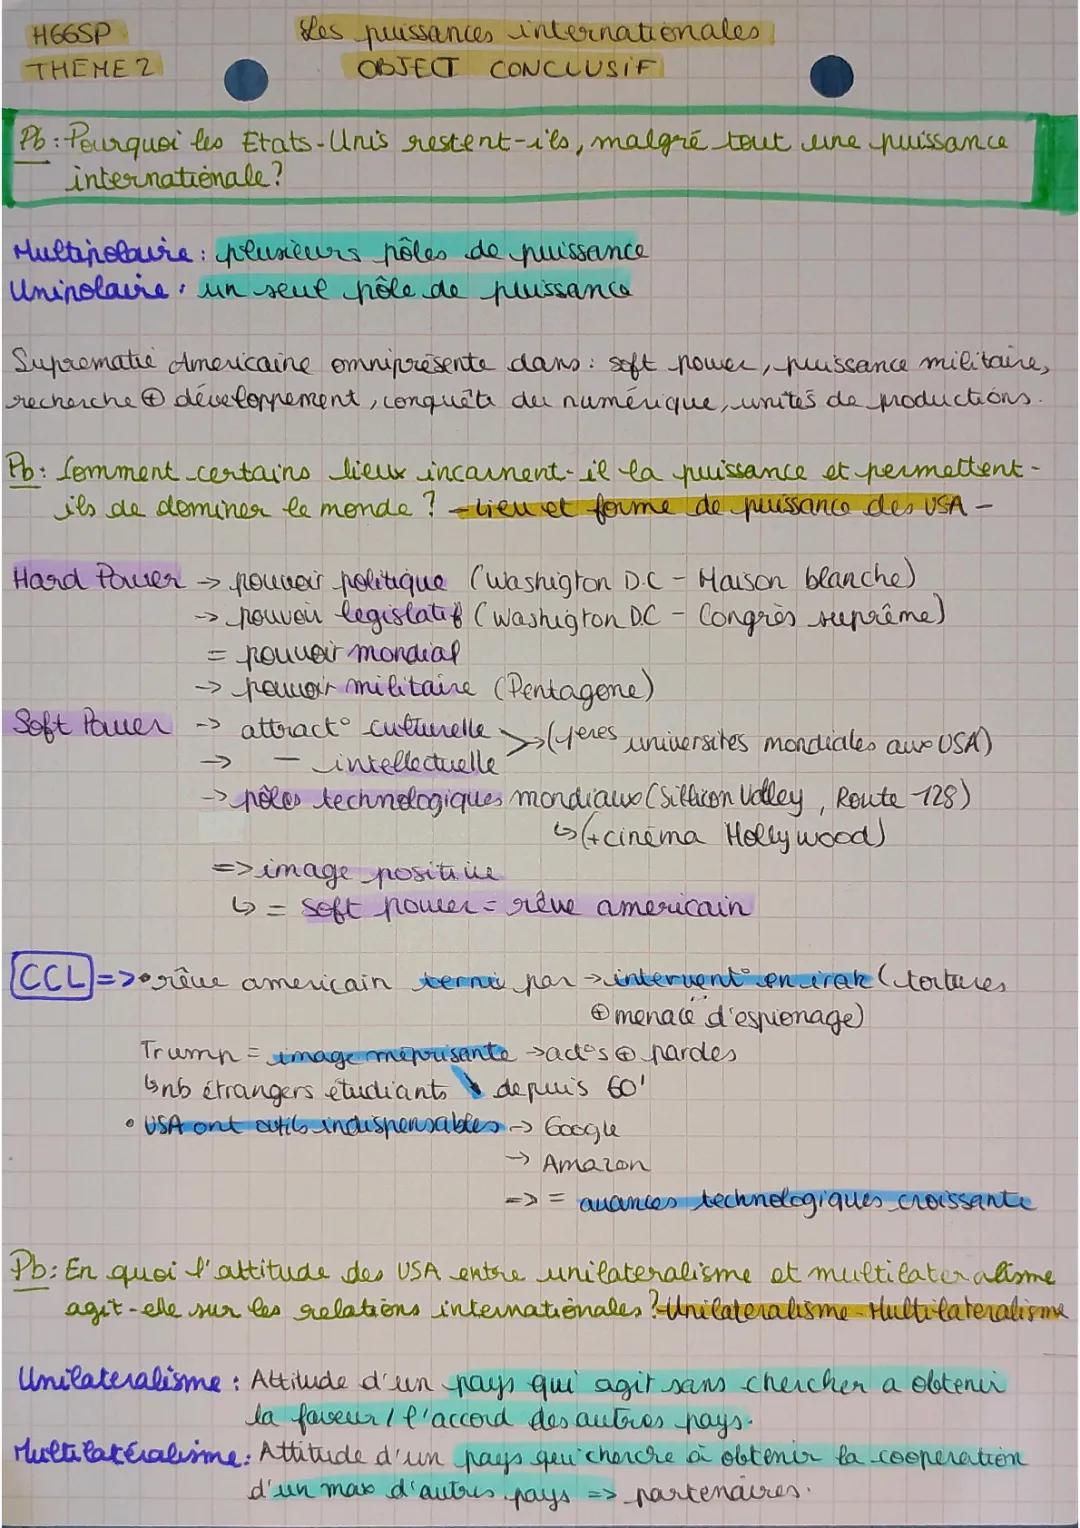 HGGSP
Les puissances internationales
THEME 2
OBJECT CONCLUSIF
Pb: Pourquoi les Etats-Unis restent-ils, malgré tout une puissance
internationale?
Multipolaire: plusieurs pôles de puissance
Unipolaire: un seul pôle de puissance
Suprematie Americaine omniprésente dans: soft power, puissance militaire,
recherche ⊕ développement, conquête du numérique, unités de productions.
Pb: Comment certains lieux incarnent-il la puissance et permettent-
ils de dominer le monde? - Lieu et forme de puissance des USA -
Hard Power → pouvoir politique (Washigton D.C - Maison blanche)
→ pouvoir legislatif (Washigton D.C - Congrès suprême)
= pouvoir mondial
→ pouvoir militaire (Pentagone)
Soft Power → attract° culturelle
→ — intellectuelle
> → (1eres universités mondiales aux USA)
→ pôles technologiques mondiaux (Sillicon Valley, Route 128)
↳ (+ cinéma Hollywood)
=> image positive
↳ = soft power = rêve americain
CCL => • rêve americain terni par → intervent° en irak (tortures
⊕ menace d'espionage)
Trump = image méprisante → act°s ⊕ pardes
↳ nb étrangers étudiants ↘ depuis 60'
• USA ont outils indispensables → Google
→ Amazon
=> = avances technologiques croissante
Pb: En quoi l'attitude des USA entre unilateralisme et multilateralisme
agit-elle sur les relations internationales? - Unilateralisme - Multilateralisme
Unilateralisme: Attitude d'un pays qui agit sans chercher a obtenir
la faveur / l'accord des autres pays.
Multilatéralisme: Attitude d'un pays qui chercre à obtenir la cooperation
d'un max d'autres pays => partenaires.